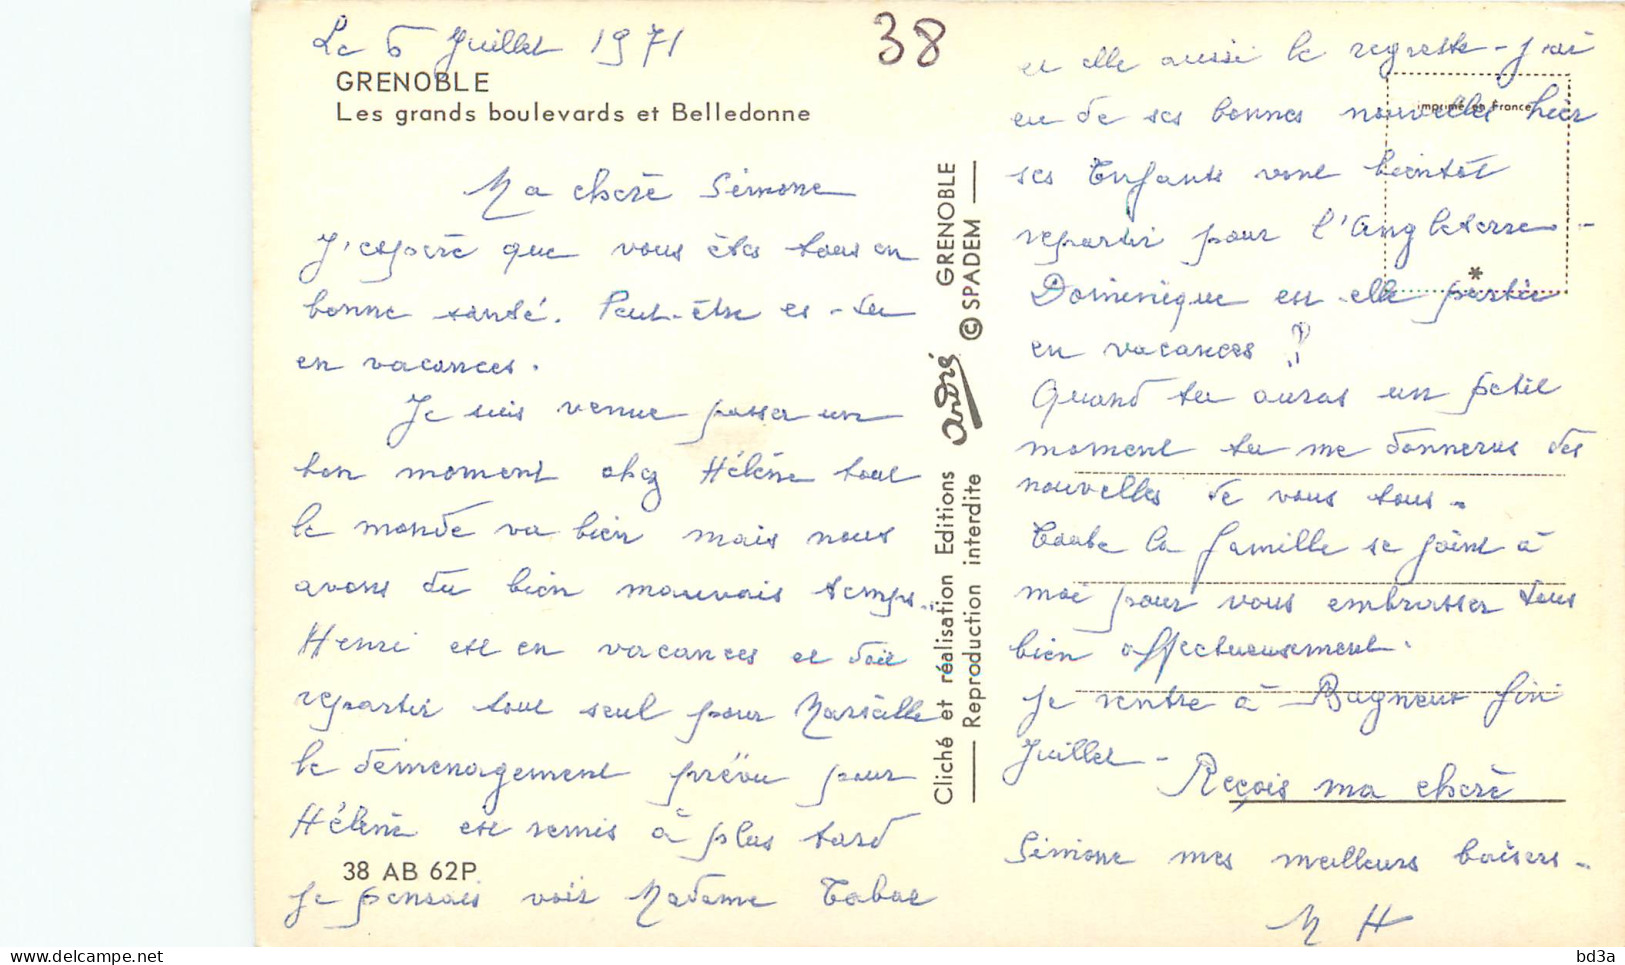 Le 6 Juillet 1971
38
GRENOBLE
Les grands boulevards et Belledonne
Ma chère Simone
J'espère que vous êtes tous en
bonne santé. Peut-être es-tu
en vacances.
Je suis venue passer un
bon moment chez Hélène tout
le monde va bien mais nous
avons du bien mauvais temps.
Henri est en vacances et doit
repartir tout seul pour Marseille
le déménagement prévu pour
Hélène est remis à plus tard
38 AB 62P
je pensais voir Madame Tabac
et elle aussi le regrette - j'ai
imprimé en France
eu de ses bonnes nouvelles hier
ses Enfants vont bientôt
repartir pour l'Angleterre -
*
Dominique est elle partie
en vacances ?
Quand tu auras un petit
moment tu me donneras des
nouvelles de vous tous -
Toute la famille se joint à
moi pour vous embrasser tous
bien affectueusement.
je rentre à Bagneux fin
Juillet -
Reçois ma chère
Simone mes meilleurs baisers -
M H
Cliché et réalisation Editions André GRENOBLE
Reproduction interdite © SPADEM
bd3a